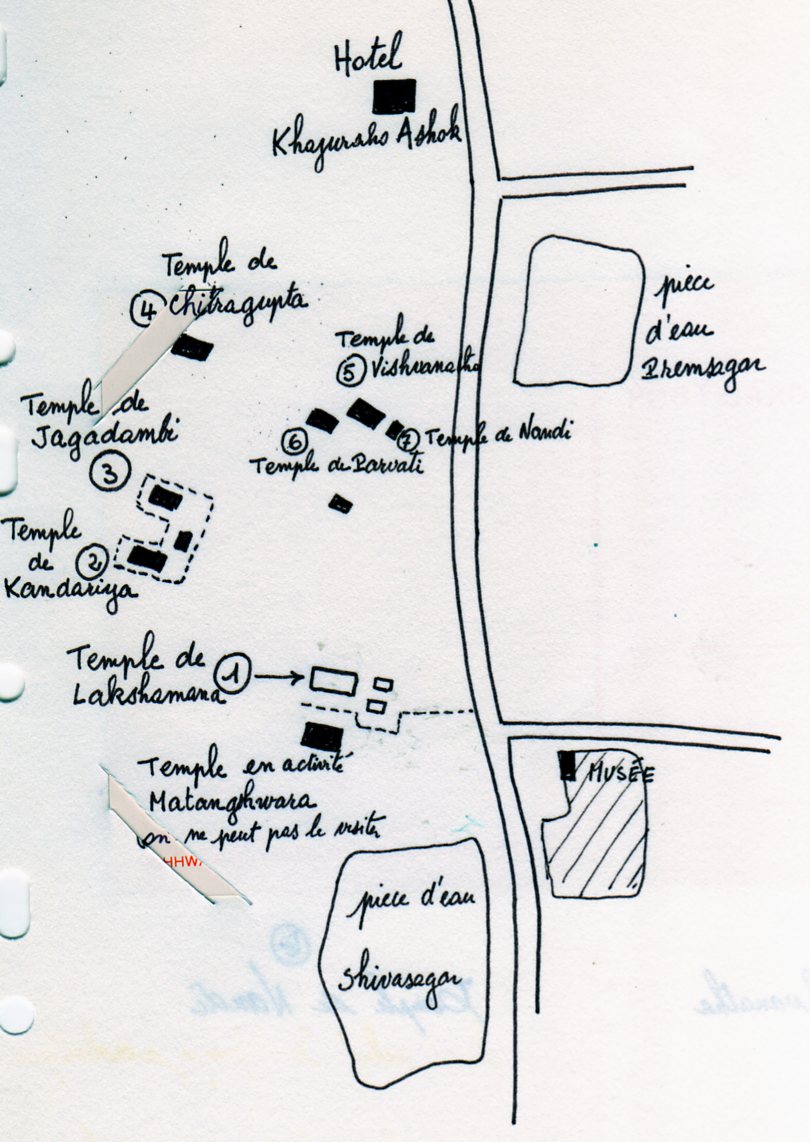 Hotel
Khajuraho Ashok
Temple de
4 Chitragupta
pièce
d'eau
Premsagar
Temple de
5 Vishvanatha
Temple de
Jagadambi
3
6
7 Temple de Nandi
Temple de Parvati
Temple
de 2
Kandariya
Temple de 1
Lakshamana
Temple en activité
Matangshwara
on ne peut pas le visiter
MUSÉE
pièce d'eau
Shivasagar
Temple de Nandi